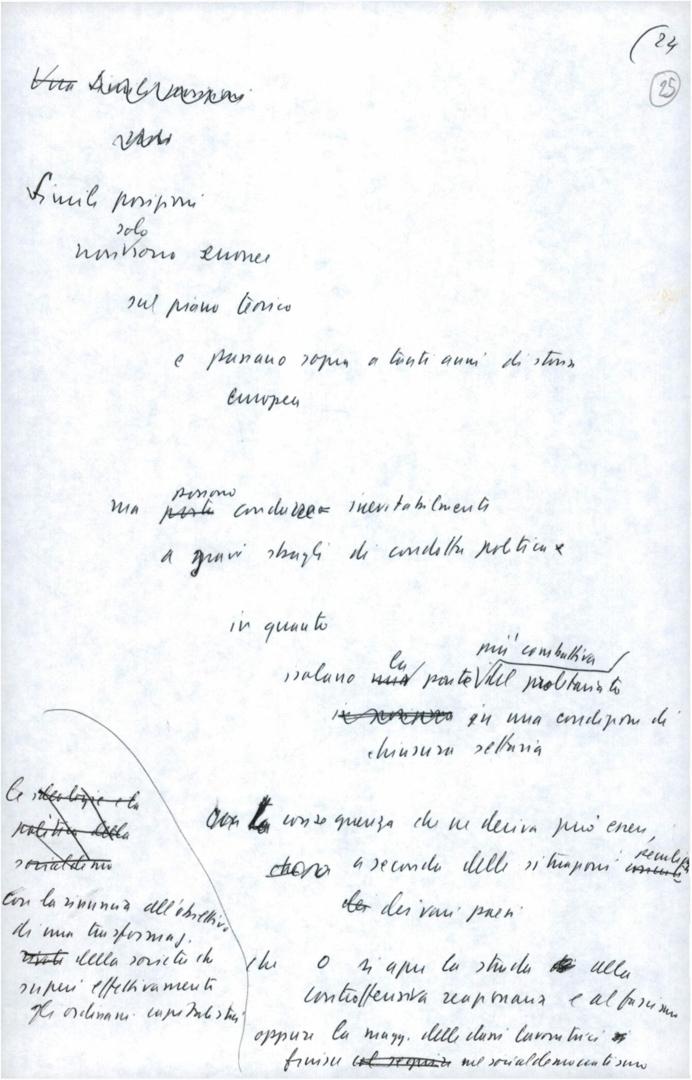 (24
25
Simili posizioni
non solo sono erronee
sul piano teorico
e passano sopra a tanti anni di storia
europea
ma possono condurre inevitabilmente
a gravi sbagli di condotta politica
in quanto
isolano la parte più combattiva del proletariato
in una condizione di
chiusura settaria
La conseguenza che ne deriva può essere,
a seconda delle situazioni
dei vari paesi
che o si apre la strada alla
controffensiva reazionaria e al fascismo
oppure la magg. delle classi lavoratrici
finisce nel socialdemocratismo
le ideologie e la
politica della
socialdemo
con la rinunzia all'obiettivo
di una trasformaz.
della società che
superi effettivamente
gli ordinam. capitalistici